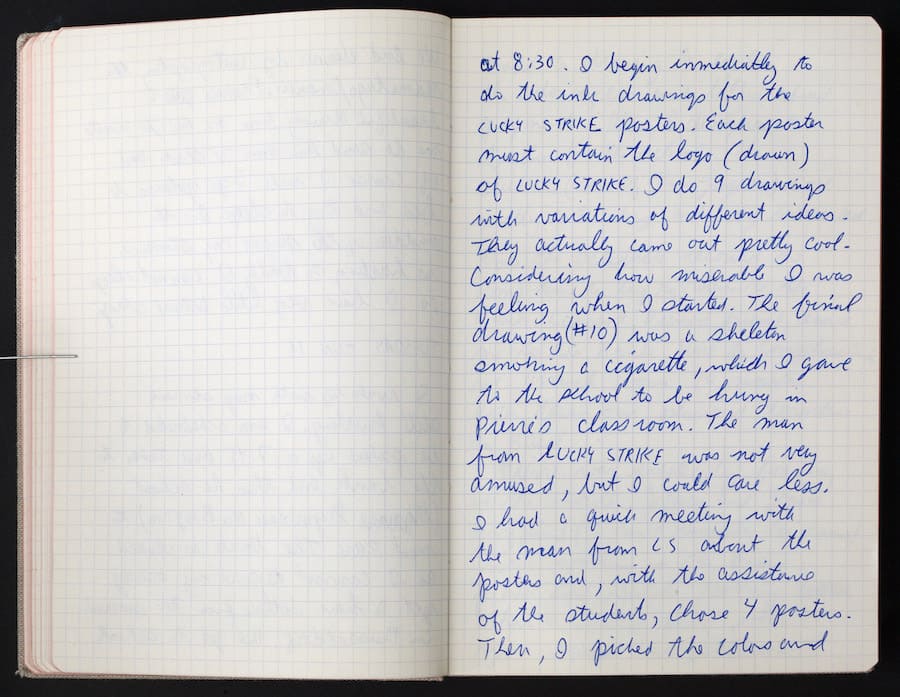 at 8:30. I begin inmediatly to
do the ink drawings for the
LUCKY STRIKE posters. Each poster
must contain the logo (drawn)
of LUCKY STRIKE. I do 9 drawings
with variations of different ideas.
They actually came out pretty cool-
Considering how miserable I was
feeling when I started. The final
drawing (#10) was a skeleton
smoking a cigarette, which I gave
to the school to be hung in
Pierre's classroom. The man
from LUCKY STRIKE was not very
amused, but I could care less.
I had a quick meeting with
the man from LS about the
posters and, with the assistance
of the students, chose 4 posters.
Then, I picked the colors and